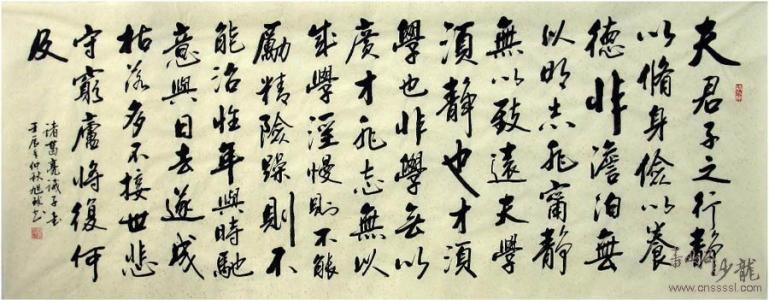 夫君子之行靜
以脩身儉以養
德非澹泊無
以明志非甯靜
無以致遠夫學
須靜也才須
學也非學无以
廣才非志無以
成學淫慢則不能
勵精險躁則不
能治性年與時馳
意與日去遂成
枯落多不接世悲
守窮廬將復何
及
諸葛亮誡子書
壬辰年仲秋旭
少龍
www.cnssssl.com